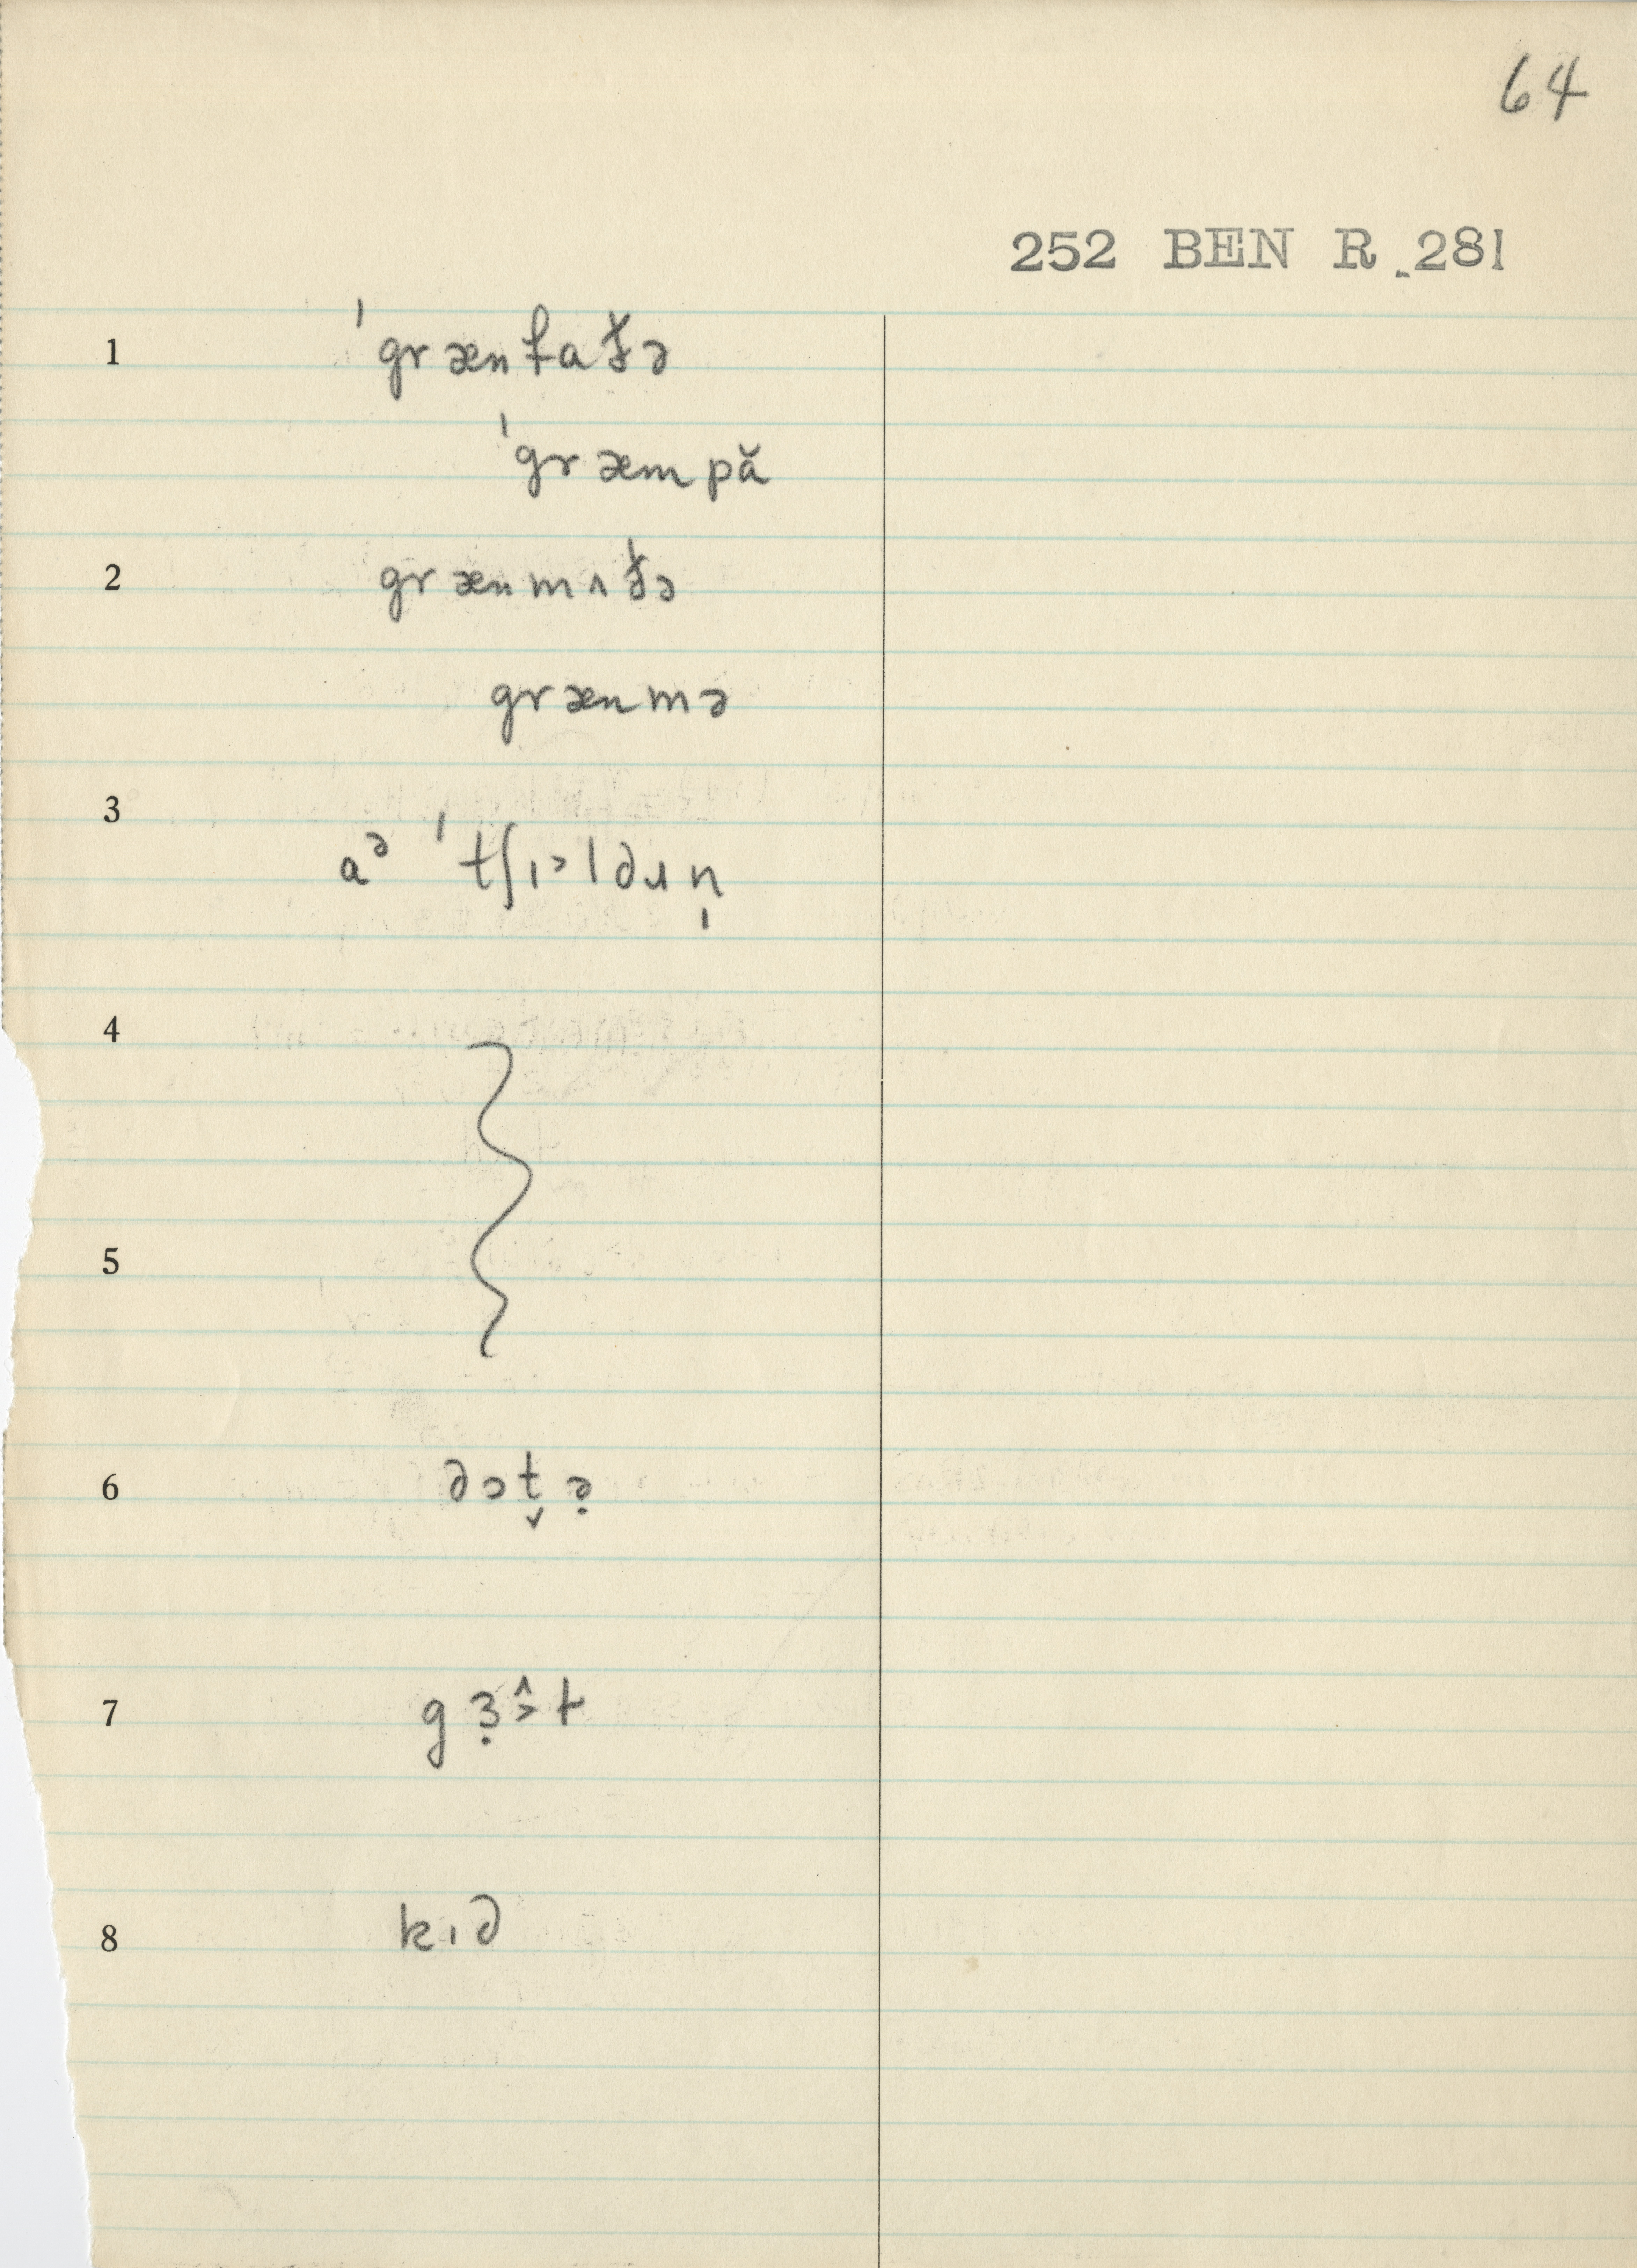 64
252 BEN R 281
1 ˈgrænfaðə
ˈgræmpă
2 grænmʌðə
grænmə
3 aᵊ ˈtʃɪ˃ldɹn̩
4
5
6 dɔt̬ə̣
7 gɜ̣˃̂t
8 kɪd